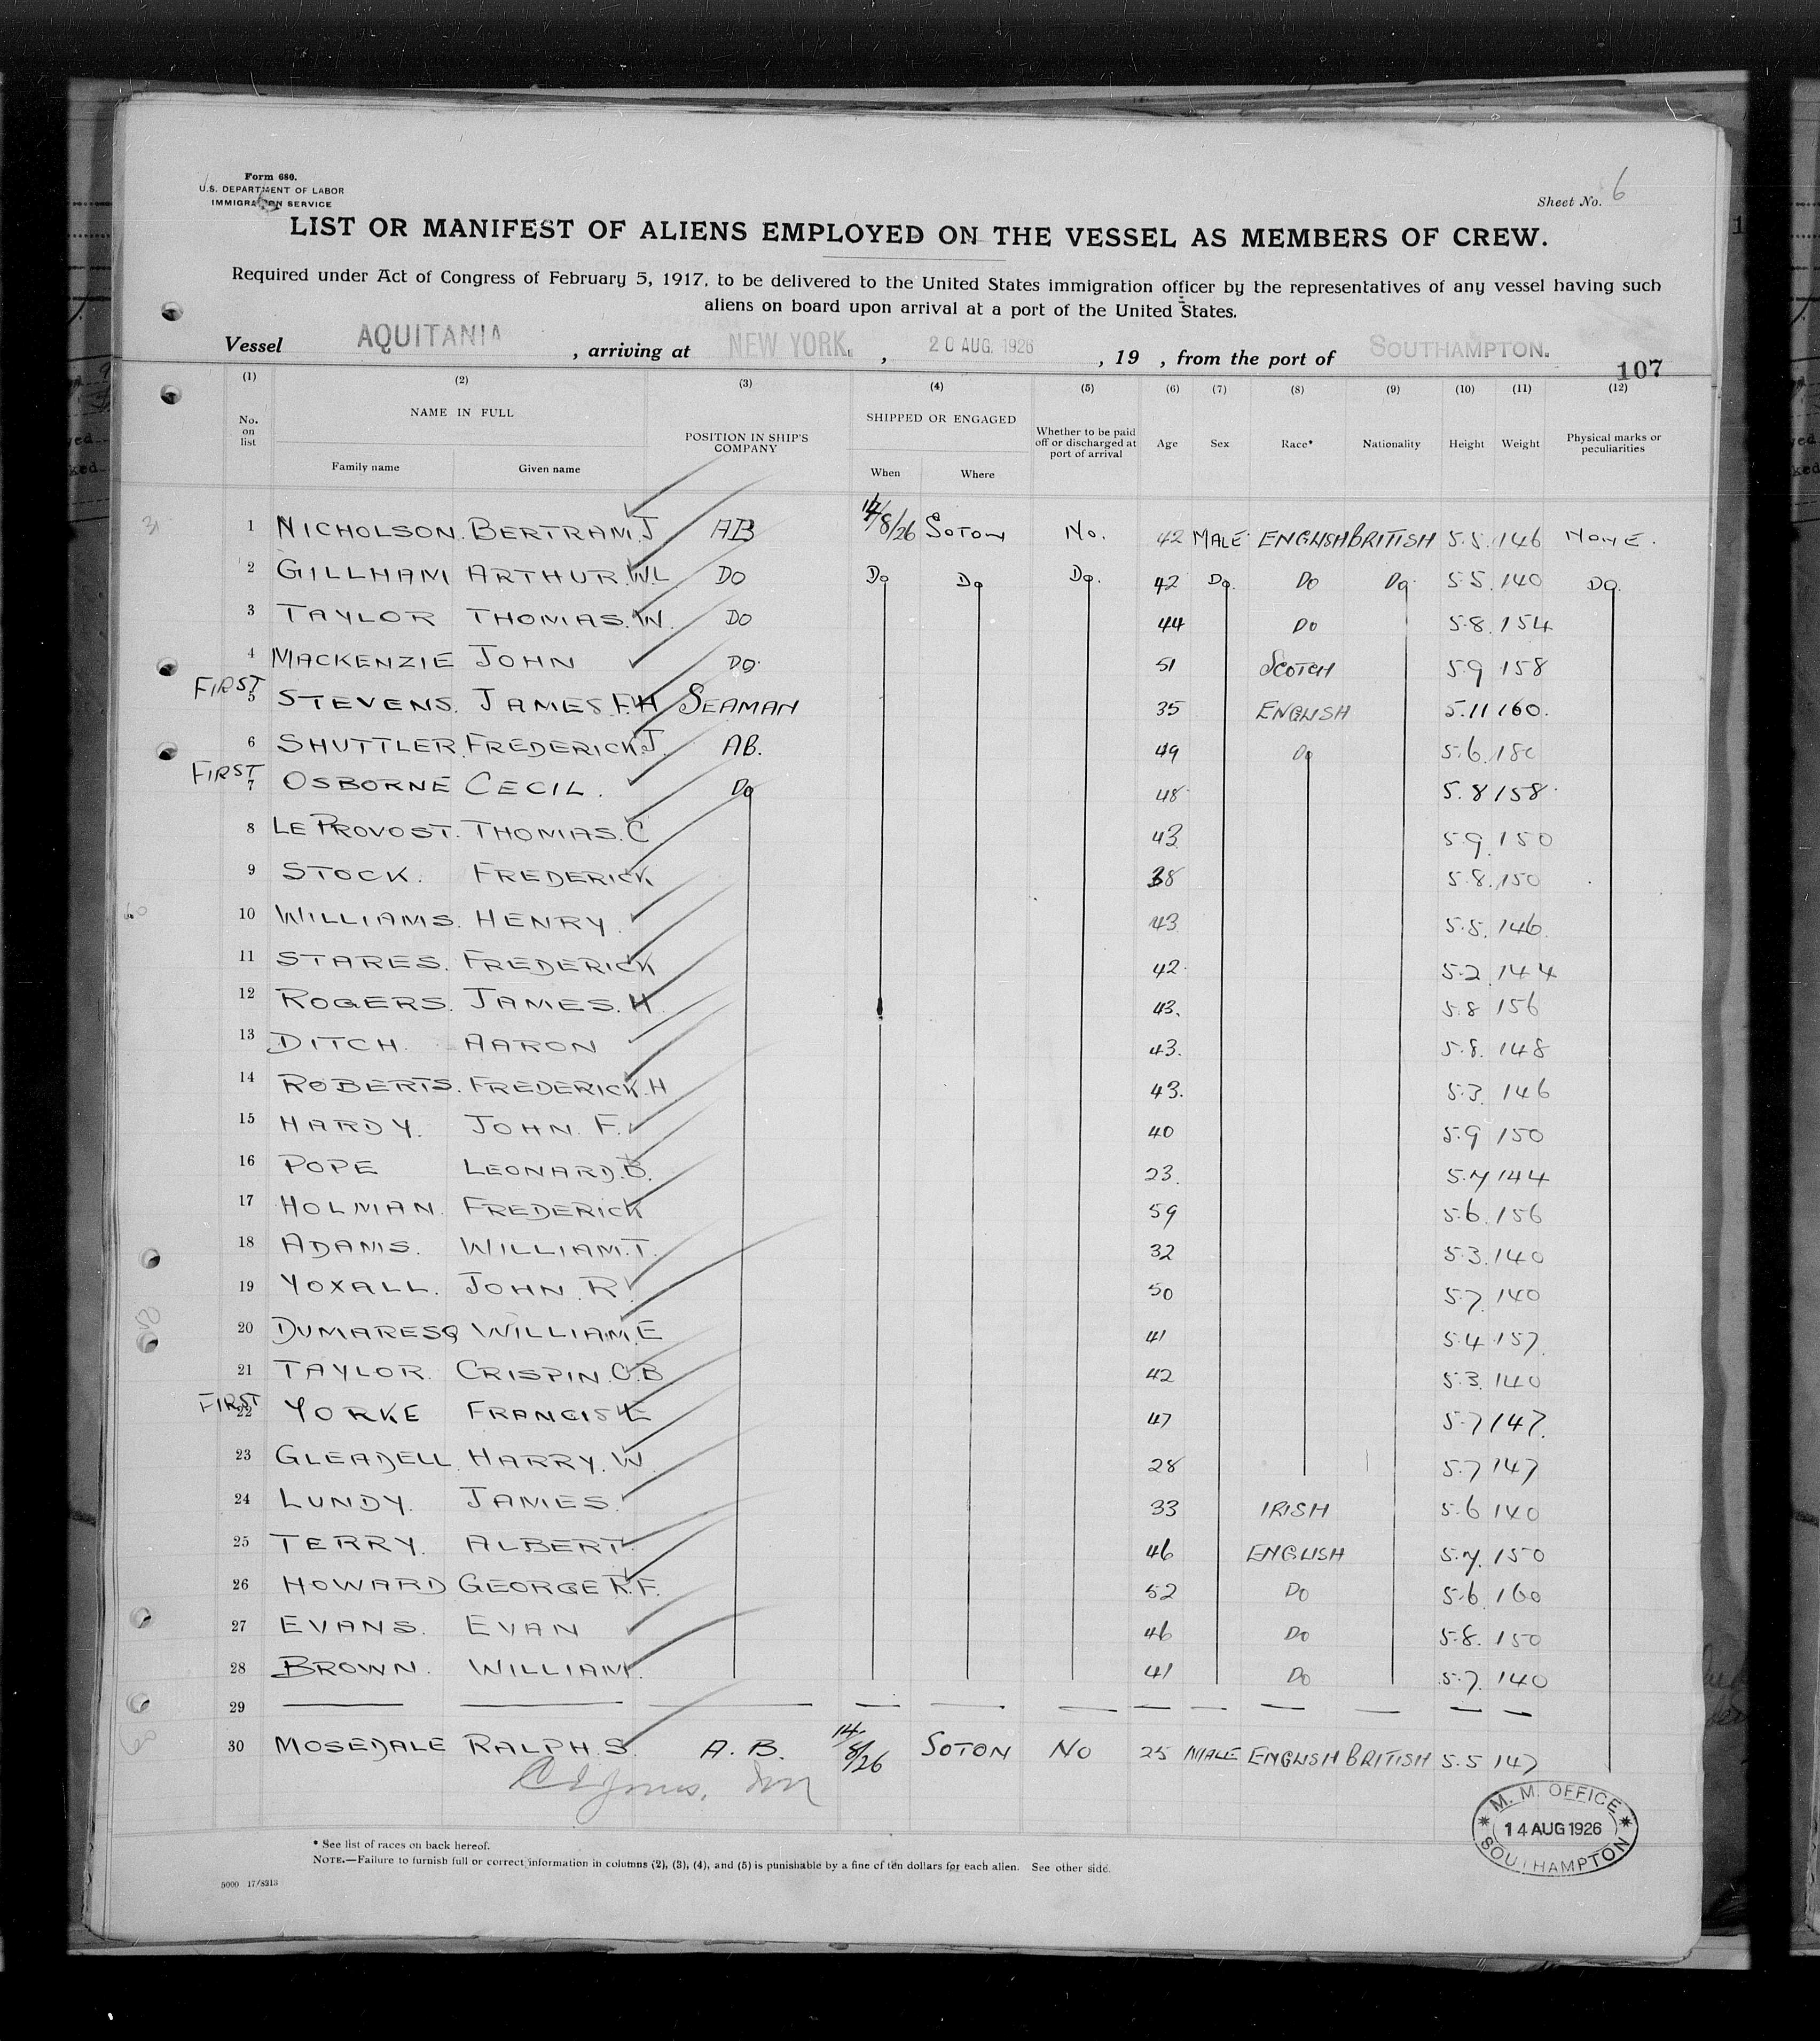 Form 680.
U.S. DEPARTMENT OF LABOR
IMMIGRATION SERVICE
Sheet No. 6
LIST OR MANIFEST OF ALIENS EMPLOYED ON THE VESSEL AS MEMBERS OF CREW.
Required under Act of Congress of February 5, 1917, to be delivered to the United States immigration officer by the representatives of any vessel having such
aliens on board upon arrival at a port of the United States.
Vessel AQUITANIA, arriving at NEW YORK., 20 AUG. 1926, 19 , from the port of SOUTHAMPTON.
107
(1) (2) (3) (4) (5) (6) (7) (8) (9) (10) (11) (12)
No. on list NAME IN FULL Family name Given name POSITION IN SHIP'S COMPANY SHIPPED OR ENGAGED When Where Whether to be paid off or discharged at port of arrival Age Sex Race* Nationality Height Weight Physical marks or peculiarities
31
1 NICHOLSON. BERTRAM. J AB 14/8/26 SOTON No. 42 MALE ENGLISH BRITISH 5.5. 146 NONE.
2 GILLHAM ARTHUR. W.L DO Do Do Do. 42 Do. Do Do. 5.5. 140 DO.
3 TAYLOR THOMAS. W. DO 44 Do 5.8. 154
4 MACKENZIE JOHN DO. 51 SCOTCH 5.9 158
FIRST
5 STEVENS. JAMES F.H SEAMAN 35 ENGLISH 5.11 160.
6 SHUTTLER. FREDERICK J. AB. 49 Do 5.6. 180
FIRST
7 OSBORNE CECIL. Do 48 5.8 158.
8 LE PROVOST. THOMAS. C 43. 5.9. 150
9 STOCK. FREDERICK 38 5.8. 150
60
10 WILLIAMS. HENRY. 43. 5.5. 146.
11 STARES. FREDERICK 42. 5.2. 144
12 ROGERS. JAMES. H. 43. 5.8 156
13 DITCH. AARON 43. 5.8. 148
14 ROBERTS. FREDERICK. H 43. 5.3. 146
15 HARDY. JOHN. F. 40 5.9 150
16 POPE LEONARD. B. 23. 5.7 144
17 HOLMAN. FREDERICK 59 5.6. 156
18 ADAMS. WILLIAM. T. 32 5.3. 140
19 YOXALL. JOHN. R. 50 5.7. 140
20 DUMARESQ WILLIAM. E 41 5.4. 157.
21 TAYLOR. CRISPIN. C.B 42 5.3. 140
FIRST
22 YORKE FRANCIS E 47 5.7 147.
23 GLEADELL. HARRY. W 28 5.7 147
24 LUNDY. JAMES. 33 IRISH 5.6 140
25 TERRY. ALBERT. 46 ENGLISH 5.7. 150
26 HOWARD GEORGE R.F. 52 Do 5.6. 160
27 EVANS. EVAN 46 Do 5.8. 150
28 BROWN. WILLIAM. 41 Do 5.7. 140
29
30 MOSEDALE RALPH. S. A.B. 14/8/26 SOTON NO 25 MALE ENGLISH BRITISH 5.5 147
M. M. OFFICE
14 AUG 1926
SOUTHAMPTON
* See list of races on back hereof.
NOTE.—Failure to furnish full or correct information in columns (2), (3), (4), and (5) is punishable by a fine of ten dollars for each alien. See other side.
5000 17/8313